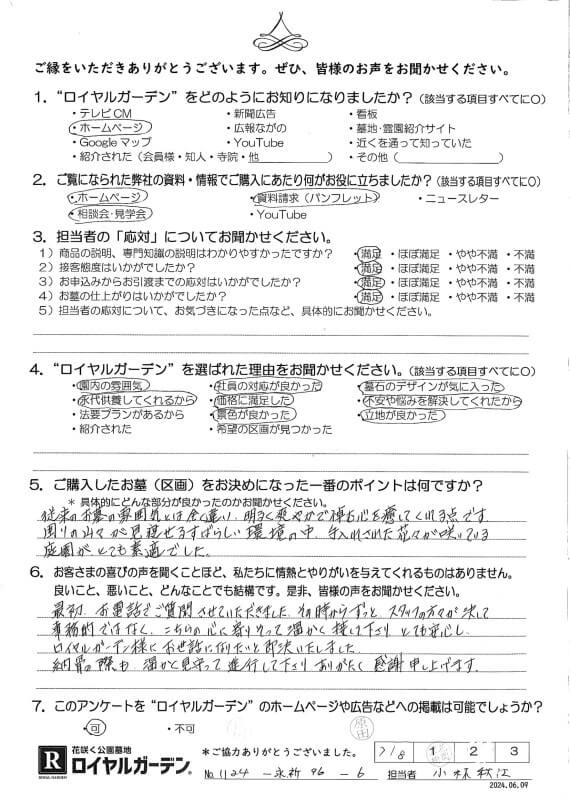 ご縁をいただきありがとうございます。ぜひ、皆様のお声をお聞かせください。
1. “ロイヤルガーデン”をどのようにお知りになりましたか？(該当する項目すべてに○)
・テレビCM ・新聞広告 ・看板
・ホームページ ・広報ながの ・墓地・霊園紹介サイト
・Googleマップ ・YouTube ・近くを通って知っていた
・紹介された（会員様・知人・寺院・他 ） ・その他（ ）
2. ご覧になられた弊社の資料・情報でご購入にあたり何がお役に立ちましたか？(該当する項目すべてに○)
・ホームページ ・資料請求（パンフレット） ・ニュースレター
・相談会・見学会 ・YouTube
3. 担当者の「応対」についてお聞かせください。
1）商品の説明、専門知識の説明はわかりやすかったですか？ ・満足 ・ほぼ満足 ・やや不満 ・不満
2）接客態度はいかがでしたか？ ・満足 ・ほぼ満足 ・やや不満 ・不満
3）お申込みからお引渡までの応対はいかがでしたか？ ・満足 ・ほぼ満足 ・やや不満 ・不満
4）お墓の仕上がりはいかがでしたか？ ・満足 ・ほぼ満足 ・やや不満 ・不満
5）担当者の応対について、お気づきになった点など、具体的にお聞かせください。
4. “ロイヤルガーデン”を選ばれた理由をお聞かせください。(該当する項目すべてに○)
・園内の雰囲気 ・社員の対応が良かった ・墓石のデザインが気に入った
・永代供養してくれるから ・価格に満足した ・不安や悩みを解決してくれたから
・法要プランがあるから ・景色が良かった ・立地が良かった
・紹介された ・希望の区画が見つかった
5. ご購入したお墓（区画）をお決めになった一番のポイントは何ですか？
＊ 具体的にどんな部分が良かったのかお聞かせください。
従来のお墓の雰囲気とは全く違い、明るく爽やかで 心を癒してくれる点です
周りの山々が見渡せるすばらしい環境の中、手入れされた花々が咲いている
庭園がとても素適でした。
6. お客さまの喜びの声を聞くことほど、私たちに情熱とやりがいを与えてくれるものはありません。
良いこと、悪いこと、どんなことでも結構です。是非、皆様の声をお聞かせください。
最初、お電話でご質問させていただきました。その時からずっと、スタッフの方々が決して
事務的ではなく、こちらの心に寄りそって温かく接して下さりとても安心し、
ロイヤルガーデン様にお世話になりたいと即決いたしました。
納骨の際も温かく見守って進行して下さりありがたく感謝申し上げます。
7. このアンケートを“ロイヤルガーデン”のホームページや広告などへの掲載は可能でしょうか？
・可 ・不可
花咲く公園墓地
R ロイヤルガーデン®
ROYAL GARDEN
＊ご協力ありがとうございました。 7/8 1 2 3
No.1124-永新96-6 担当者 小林秋江
2024.06.09